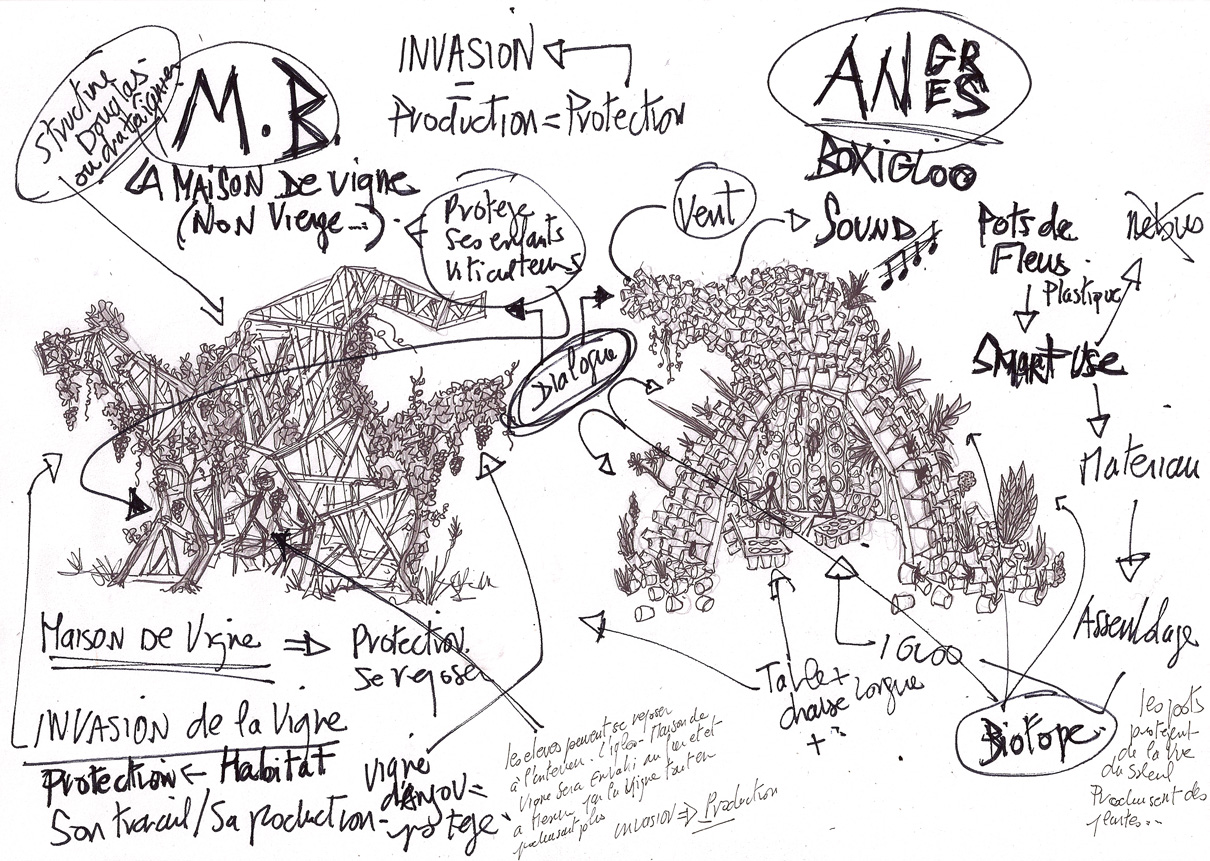 Structure
Douglas
ou chataignier
M.B.
LA MAISON DE Vigne
(NON Vierge...)
INVASION
=
Production = Protection
Protege
Ses enfants
Viticulteurs
Dialogue
Vent
SOUND
ANGRES
BOXiGLOO
Pots de
Fleurs
Plastique
nebus
SMART USE
Materiau
Assemblage
Biotope
les pots
protegent
de la vue
du soleil
Produisent des
plantes...
IGLOO
Table +
chaise longue
+
MAISON DE Vigne ⇒ Protection.
se reposer
INVASION de la Vigne
Protection ← Habitat
Son travail/Sa production-
Vigne
d'Anjou =
protege
les eleves peuvent se reposer
à l'interieur. L'igloo-Maison de
Vigne sera Envahi au fur et
a mesure par la Vigne tout en
produisant plus
invasion ⇒ Production